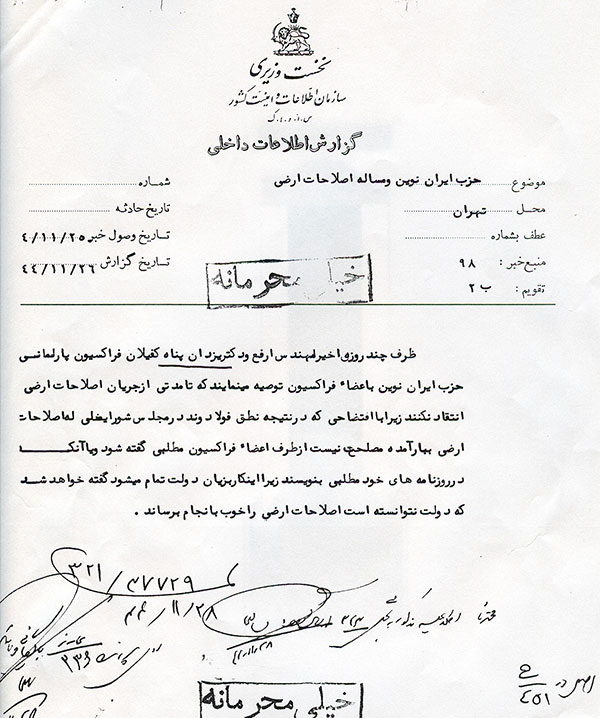 نخست وزیری
سازمان اطلاعات و امنیت کشور
س.ا.و.ا.ک
گزارش اطلاعات داخلی
موضوع حزب ایران نوین و مساله اصلاحات ارضی
شماره
محل تهران
تاریخ حادثه
عطف بشماره
تاریخ وصول خبر ۴/۱۱/۲۵
منبع خبر : ۹۸
تاریخ گزارش ۴۴/۱۱/۲۶
تقویم : ب ۲
خیلی محرمانه
ظرف چند روزی اخیر مهندس ارفع و دکتر یزدان پناه کفیلان فراکسیون پارلمانی
حزب ایران نوین باعضاء فراکسیون توصیه مینمایند که تا مدتی از جریان اصلاحات ارضی
انتقاد نکنند زیرا با افتضاحی که در نتیجه نطق فولادوند در مجلس شورایملی له اصلاحات
ارضی ببار آمده مصلحت نیست از طرف اعضاء فراکسیون مطلبی گفته شود و یا آنکه
در روزنامه های خود مطلبی بنویسند زیرا اینکار بزیان دولت تمام میشود گفته خواهد شد
که دولت نتوانسته است اصلاحات ارضی را خوب بانجام برساند .
۳۲۱/۳۷۷۲۹
۴۴/۱۱/۲۸
۳۳۶
خیلی محرمانه